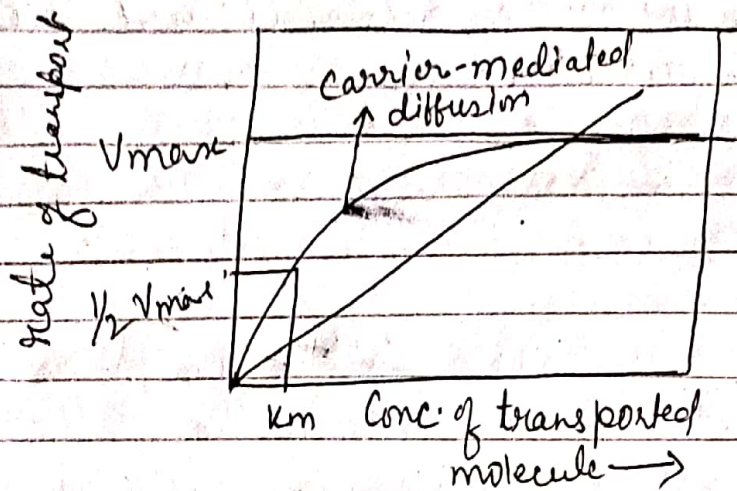 rate of transport
Carrier-mediated
diffusion
Vmax
1/2 Vmax
Km
Conc. of transported
molecule →